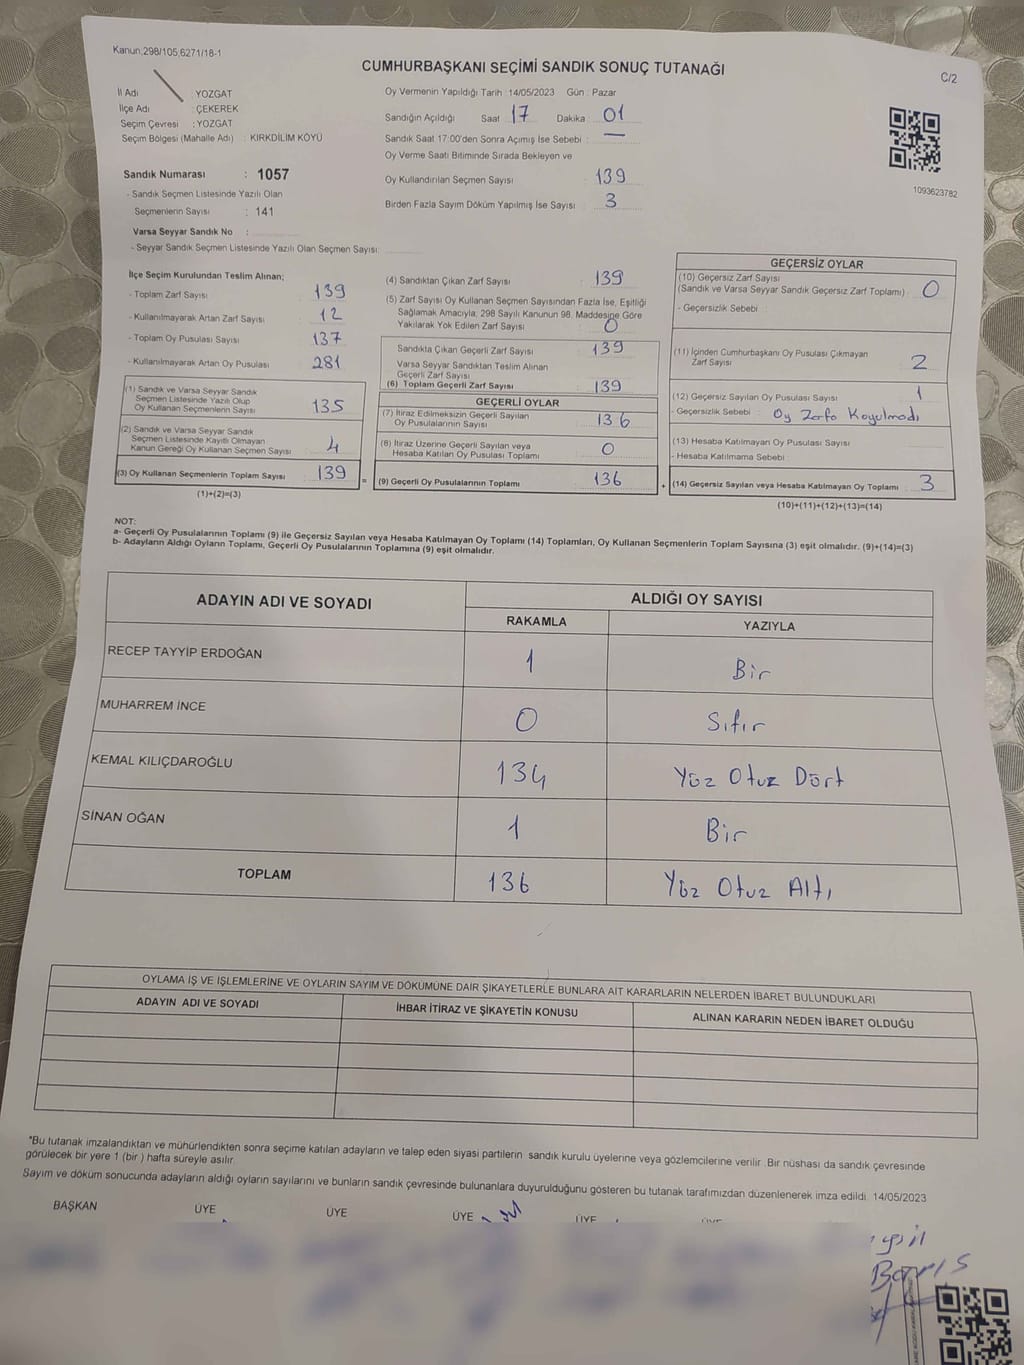 Kanun,298/105,6271/18-1
CUMHURBAŞKANI SEÇİMİ SANDIK SONUÇ TUTANAĞI
C/2
İl Adı : YOZGAT
İlçe Adı : ÇEKEREK
Seçim Çevresi : YOZGAT
Seçim Bölgesi (Mahalle Adı) : KIRKDİLİM KÖYÜ
Oy Vermenin Yapıldığı Tarih : 14/05/2023 Gün : Pazar
Sandığın Açıldığı Saat : 17 Dakika : 01
Sandık Saat 17:00'den Sonra Açımış İse Sebebi : —
Oy Verme Saati Bitiminde Sırada Bekleyen ve
Oy Kullandırılan Seçmen Sayısı : 139
Birden Fazla Sayım Döküm Yapılmış İse Sayısı : 3
1093623782
Sandık Numarası : 1057
- Sandık Seçmen Listesinde Yazılı Olan
Seçmenlerin Sayısı : 141
Varsa Seyyar Sandık No :
- Seyyar Sandık Seçmen Listesinde Yazılı Olan Seçmen Sayısı:
İlçe Seçim Kurulundan Teslim Alınan;
- Toplam Zarf Sayısı : 139
- Kullanılmayarak Artan Zarf Sayısı : 12
- Toplam Oy Pusulası Sayısı : 137
- Kullanılmayarak Artan Oy Pusulası : 281
(1) Sandık ve Varsa Seyyar Sandık
Seçmen Listesinde Yazılı Olup
Oy Kullanan Seçmenlerin Sayısı : 135
(2) Sandık ve Varsa Seyyar Sandık
Seçmen Listesinde Kayıtlı Olmayan
Kanun Gereği Oy Kullanan Seçmen Sayısı : 4
(3) Oy Kullanan Seçmenlerin Toplam Sayısı : 139
(1)+(2)=(3)
(4) Sandıktan Çıkan Zarf Sayısı : 139
(5) Zarf Sayısı Oy Kullanan Seçmen Sayısından Fazla İse, Eşitliği
Sağlamak Amacıyla; 298 Sayılı Kanunun 98. Maddesine Göre
Yakılarak Yok Edilen Zarf Sayısı : 0
Sandıkta Çıkan Geçerli Zarf Sayısı : 139
Varsa Seyyar Sandıktan Teslim Alınan
Geçerli Zarf Sayısı
(6) Toplam Geçerli Zarf Sayısı : 139
GEÇERLİ OYLAR
(7) İtiraz Edilmeksizin Geçerli Sayılan
Oy Pusulalarının Sayısı : 136
(8) İtiraz Üzerine Geçerli Sayılan veya
Hesaba Katılan Oy Pusulası Toplamı : 0
= (9) Geçerli Oy Pusulalarının Toplamı : 136
GEÇERSİZ OYLAR
(10) Geçersiz Zarf Sayısı
(Sandık ve Varsa Seyyar Sandık Geçersiz Zarf Toplamı) : 0
- Geçersizlik Sebebi :
(11) İçinden Cumhurbaşkanı Oy Pusulası Çıkmayan
Zarf Sayısı : 2
(12) Geçersiz Sayılan Oy Pusulası Sayısı : 1
- Geçersizlik Sebebi : Oy Zarfa Koyulmadı
(13) Hesaba Katılmayan Oy Pusulası Sayısı :
- Hesaba Katılmama Sebebi :
+ (14) Geçersiz Sayılan veya Hesaba Katılmayan Oy Toplamı : 3
(10)+(11)+(12)+(13)=(14)
NOT:
a- Geçerli Oy Pusulalarının Toplamı (9) ile Geçersiz Sayılan veya Hesaba Katılmayan Oy Toplamı (14) Toplamları, Oy Kullanan Seçmenlerin Toplam Sayısına (3) eşit olmalıdır. (9)+(14)=(3)
b- Adayların Aldığı Oyların Toplamı, Geçerli Oy Pusulalarının Toplamına (9) eşit olmalıdır.
ADAYIN ADI VE SOYADI ALDIĞI OY SAYISI
RAKAMLA YAZIYLA
RECEP TAYYİP ERDOĞAN 1 Bir
MUHARREM İNCE 0 Sıfır
KEMAL KILIÇDAROĞLU 134 Yüz Otuz Dört
SİNAN OĞAN 1 Bir
TOPLAM 136 Yüz Otuz Altı
OYLAMA İŞ VE İŞLEMLERİNE VE OYLARIN SAYIM VE DÖKÜMÜNE DAİR ŞİKAYETLERLE BUNLARA AİT KARARLARIN NELERDEN İBARET BULUNDUKLARI
ADAYIN ADI VE SOYADI İHBAR İTİRAZ VE ŞİKAYETİN KONUSU ALINAN KARARIN NEDEN İBARET OLDUĞU
*Bu tutanak imzalandıktan ve mühürlendikten sonra seçime katılan adayların ve talep eden siyasi partilerin sandık kurulu üyelerine veya gözlemcilerine verilir. Bir nüshası da sandık çevresinde
görülecek bir yere 1 (bir ) hafta süreyle asılır.
Sayım ve döküm sonucunda adayların aldığı oyların sayılarını ve bunların sandık çevresinde bulunanlara duyurulduğunu gösteren bu tutanak tarafımızdan düzenlenerek imza edildi. 14/05/2023
BAŞKAN ÜYE ÜYE ÜYE ÜYE
Barış